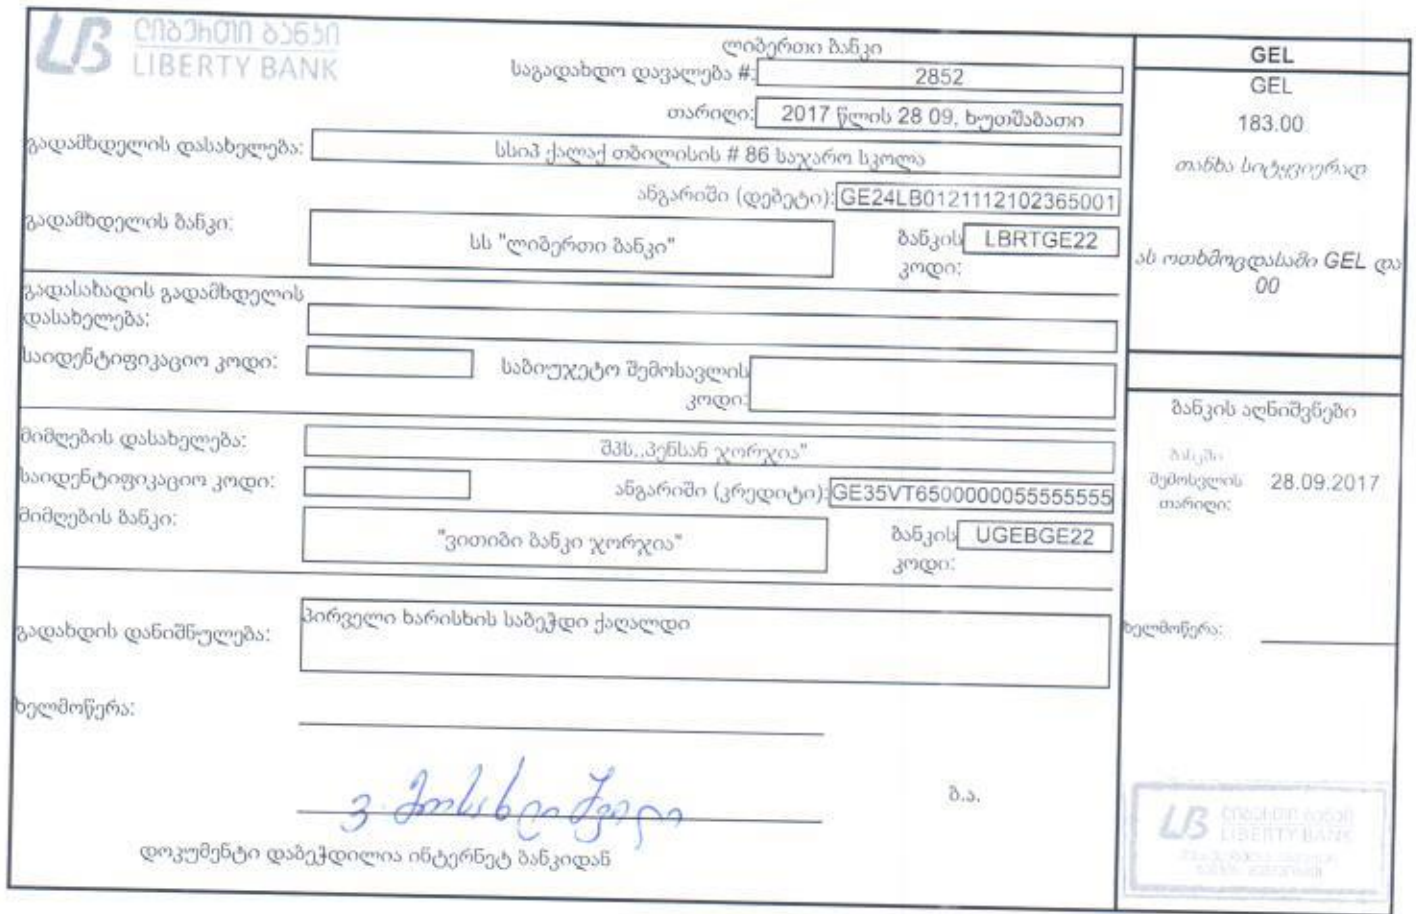 ლიბერთი ბანკი
LIBERTY BANK
ლიბერთი ბანკი
საგადახდო დავალება #: 2852
თარიღი: 2017 წლის 28 09, ხუთშაბათი
გადამხდელის დასახელება: სსიპ ქალაქ თბილისის # 86 საჯარო სკოლა
ანგარიში (დებეტი): GE24LB0121112102365001
გადამხდელის ბანკი: სს "ლიბერთი ბანკი" ბანკის კოდი: LBRTGE22
გადასახადის გადამხდელის
დასახელება:
საიდენტიფიკაციო კოდი: საბიუჯეტო შემოსავლის
კოდი:
მიმღების დასახელება: შპს,,პენსან ჯორჯია"
საიდენტიფიკაციო კოდი: ანგარიში (კრედიტი): GE35VT6500000055555555
მიმღების ბანკი: "ვითიბი ბანკი ჯორჯია" ბანკის კოდი: UGEBGE22
გადახდის დანიშნულება: პირველი ხარისხის საბეჭდი ქაღალდი
ხელმოწერა:
ბ.ა.
დოკუმენტი დაბეჭდილია ინტერნეტ ბანკიდან
GEL
GEL
183.00
თანხა სიტყვიერად
ას ოთხმოცდასამი GEL და
00
ბანკის აღნიშვნები
ბანკში
შემოსვლის 28.09.2017
თარიღი:
ხელმოწერა:
ლიბერთი ბანკი
LIBERTY BANK